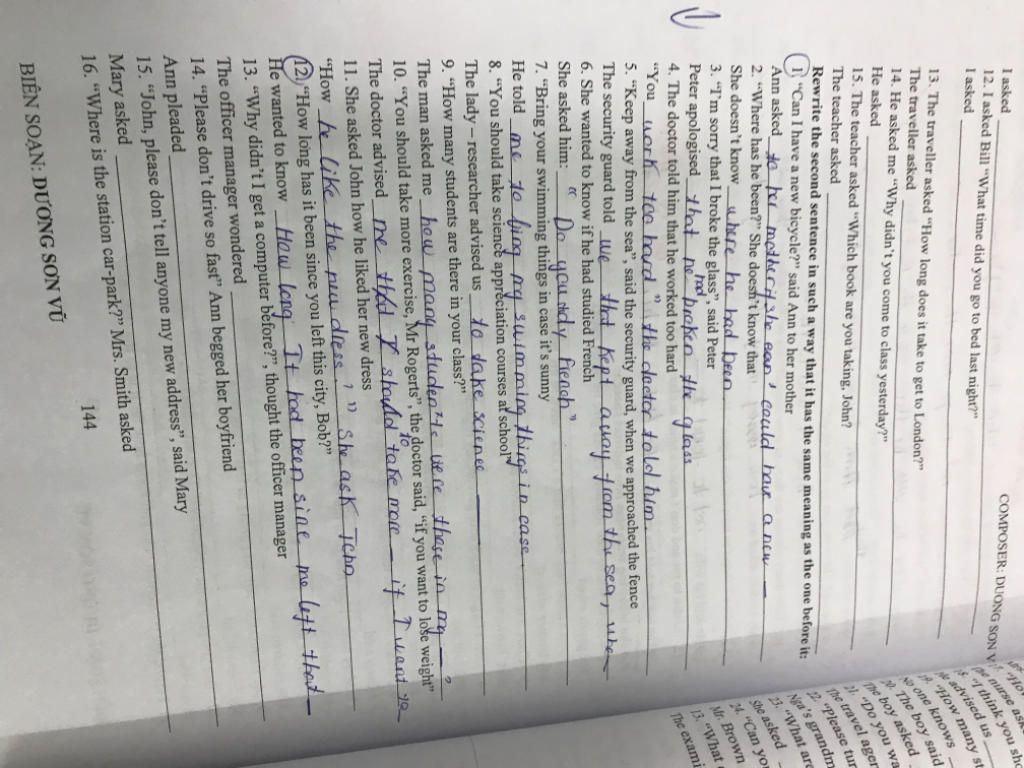 I asked
COMPOSER: DUONG SON V
12. I asked Bill “What time did you go to bed last night?”
I asked
13. The traveller asked “How long does it take to get to London?”
The traveller asked
14. He asked me “Why didn't you come to class yesterday?”
He asked
15. The teacher asked “Which book are you taking, John?
The teacher asked
Rewrite the second sentence in such a way that it has the same meaning as the one before it:
1. “Can I have a new bicycle?” said Ann to her mother
Ann asked to her mother if she could have a new
2. “Where has he been?” She doesn't know that
She doesn't know where he had been
3. “I'm sorry that I broke the glass”, said Peter
Peter apologised that he had broken the glass
4. The doctor told him that he worked too hard
“You work too hard” the doctor told him
5. “Keep away from the sea”, said the security guard, when we approached the fence
The security guard told we that kept away from the sea, whe
6. She wanted to know if he had studied French
She asked him: “ Do you study French”
7. “Bring your swimming things in case it's sunny
He told me to bing my swimming things in case
8. “You should take science appreciation courses at school”
The lady – researcher advised us to take science
9. “How many students are there in your class?”
The man asked me how many students were there in my
10. “You should take more exercise, Mr Rogerts”, the doctor said, “if you want to lose weight”
The doctor advised me that I should to take more if I want to
11. She asked John how he liked her new dress
“How he like the new dress ” She ask John
12. “How long has it been since you left this city, Bob?”
He wanted to know How long It had been sine me left that
13. “Why didn't I get a computer before?”, thought the officer manager
The officer manager wondered
14. “Please don't drive so fast” Ann begged her boyfriend
Ann pleaded
15. “John, please don't tell anyone my new address”, said Mary
Mary asked
16. “Where is the station car-park?” Mrs. Smith asked
144
BIÊN SOẠN: DƯƠNG SƠN VŨ
“I think you sho
advised us
“How many st
No one knows
20. The boy said
The boy asked
21. “Do you wa
The travel agen
22. “Please tur
Nga's grandm
23. “What are
She asked
24. “Can yo
Mr. Brown
13. “What
The exami